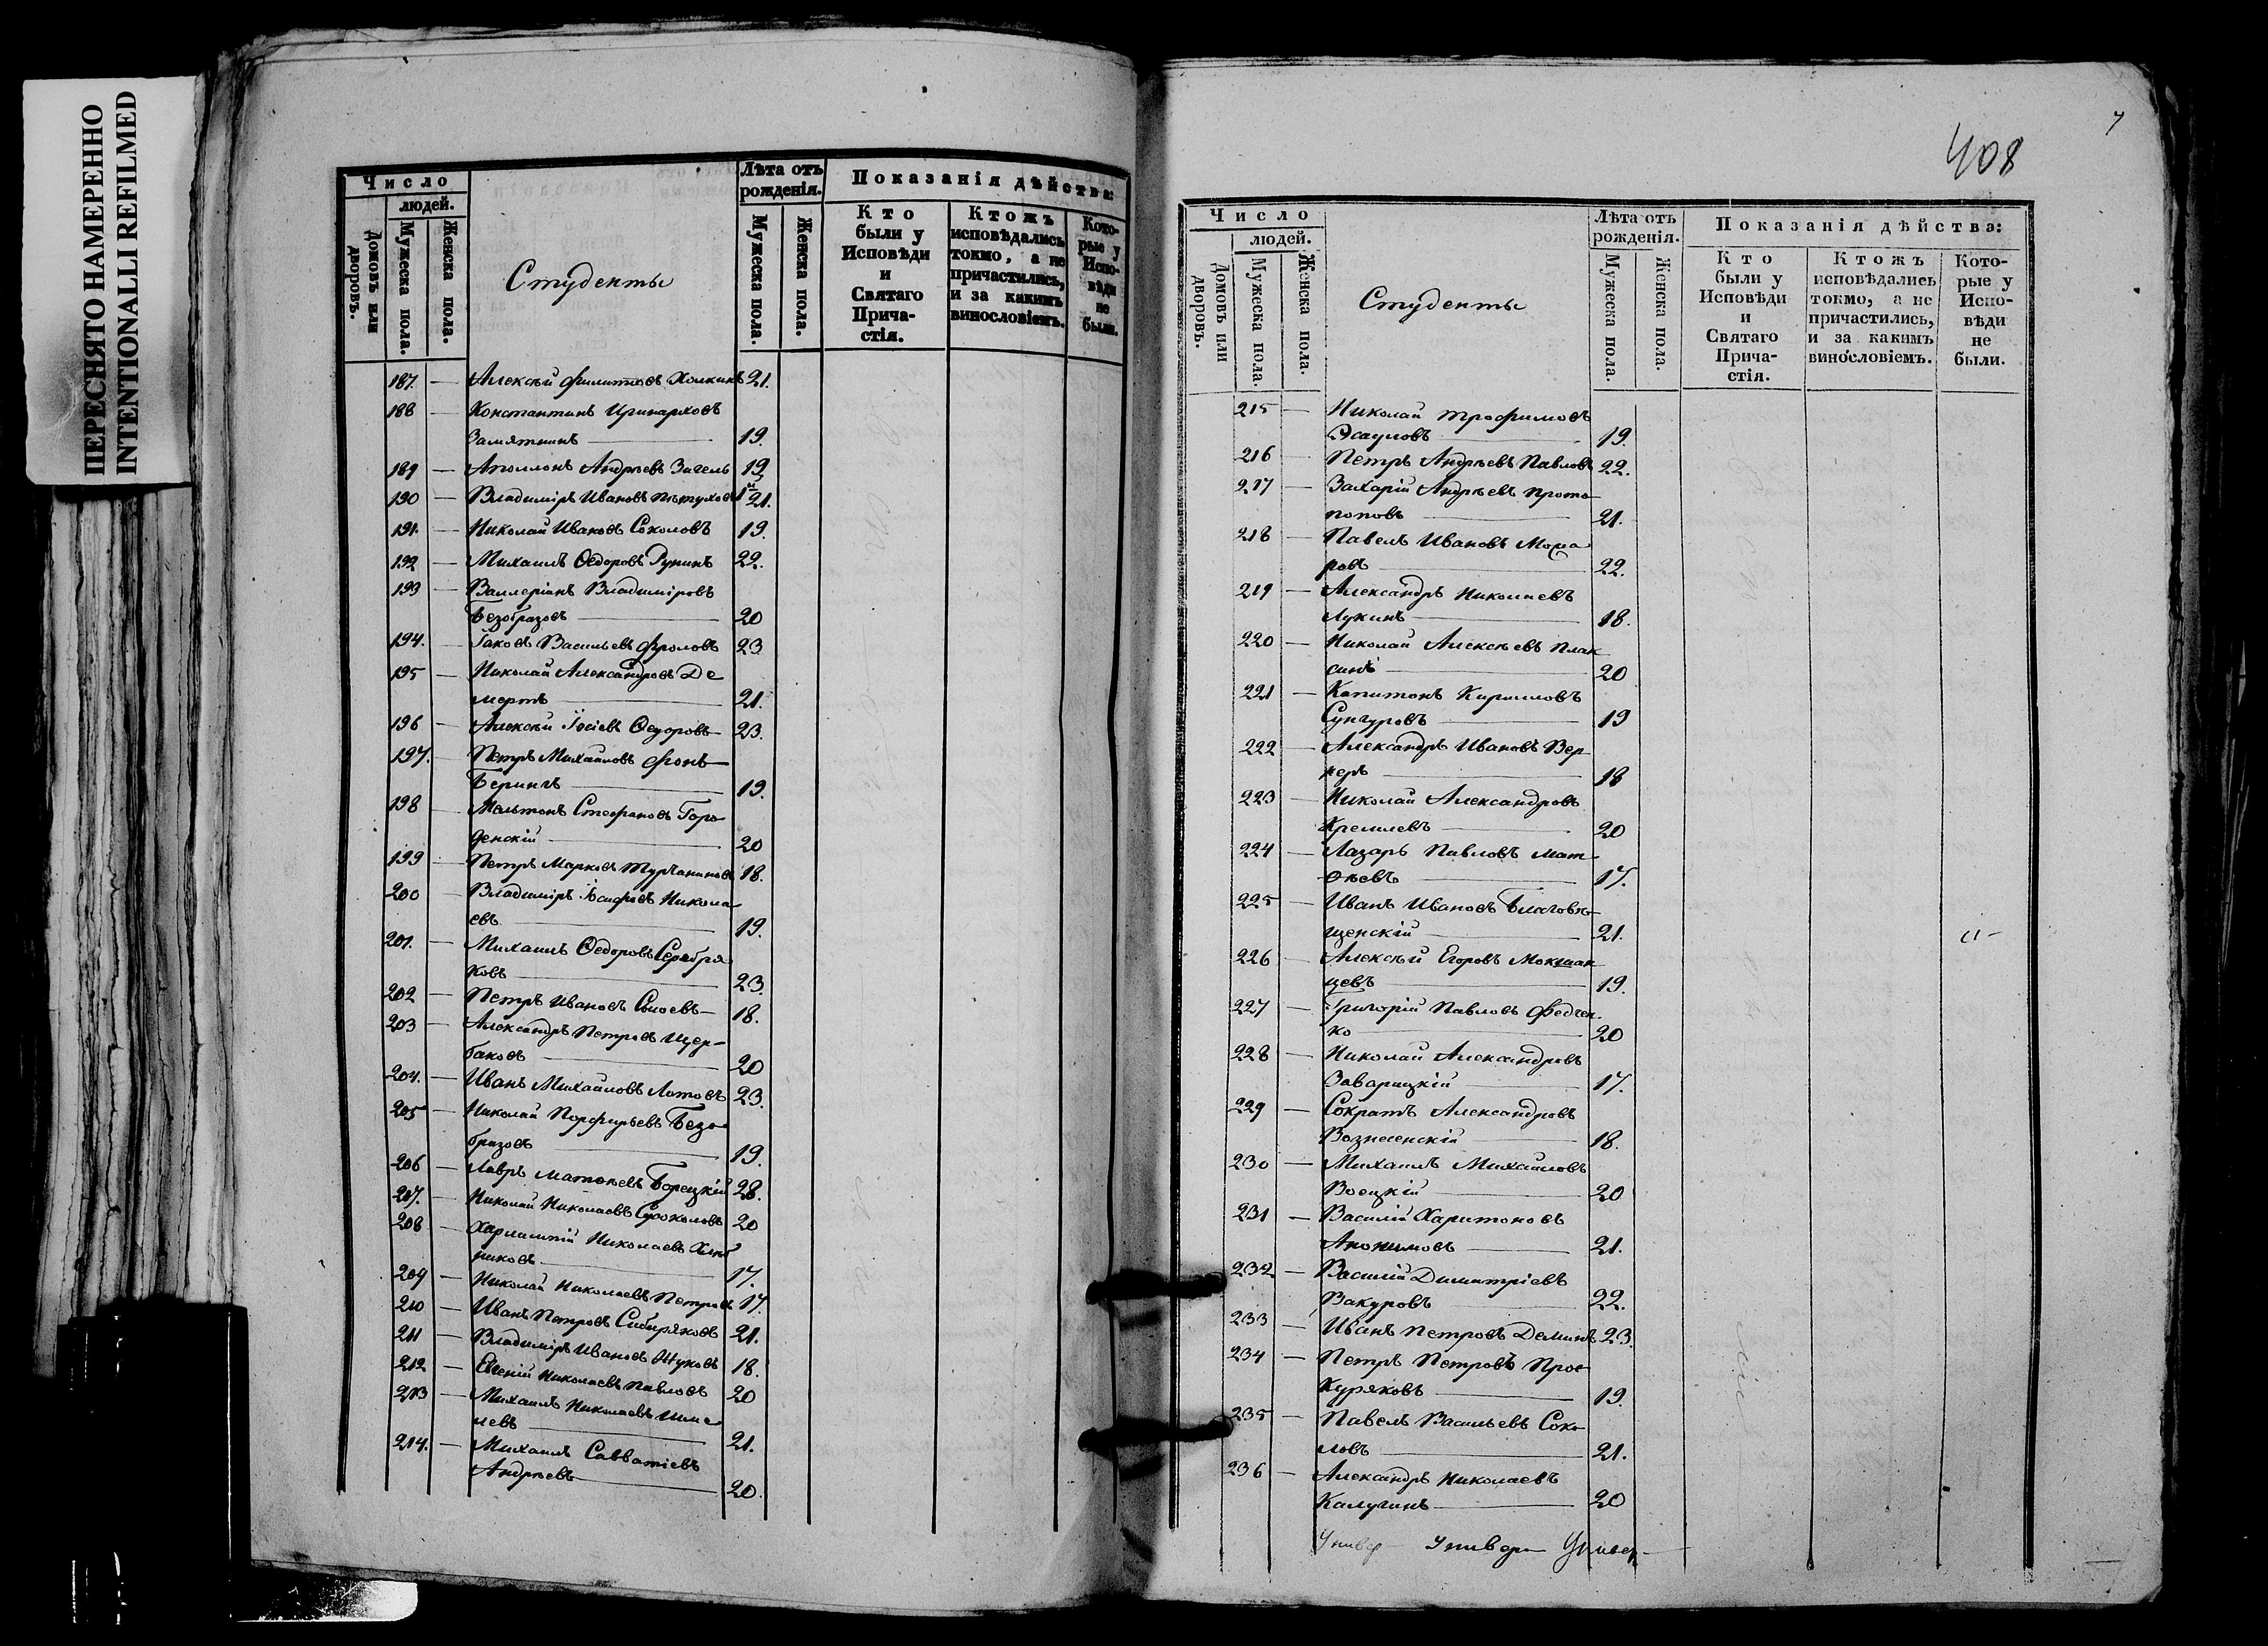 ПЕРЕСНЯТО НАМЕРЕННО
INTENTIONALLI REFILMED
Число
людей.
Домовъ или дворовъ.
Мужеска пола.
Женска пола.
Студенты
Лѣта отъ рожденія.
Мужеска пола.
Женска пола.
Показанія дѣйства:
Кто были у Исповѣди и Святаго Прича-стія.
Ктожъ исповѣдались токмо, а не причастились, и за какимъ винословіемъ.
Кото-рые у Испо-вѣди не были.
187. — Алексѣй Филитовъ Холкинъ 21.
188 — Константинъ Иринарховъ
Замятнинъ 19.
189 — Аполлонъ Андреевъ Загель 19
190 — Владиміръ Ивановъ Пѣтуховъ 21.
191. — Николай Ивановъ Соколовъ 19.
192 — Михаилъ Ѳедоровъ Рунинъ 22.
193 — Валлеріанъ Владиміровъ
Безобразовъ 20
194. — Іаковъ Васильевъ Фроловъ 23
195 — Николай Александровъ Де
мертъ 21.
196 — Алексѣй Ѳедоровъ 23.
197. — Петръ Михаиловъ фонъ
Берингъ 19.
198 — Мельтонъ Стефановъ Горо
денскій 20
199 — Петръ Марковъ Турчаниновъ 18.
200 — Владиміръ Іосифовъ Никола
евъ 19.
201. — Михаилъ Ѳедоровъ Серебря
ковъ 23.
202 — Петръ Ивановъ 18.
203 — Александръ Петровъ Щер-
баковъ 20
204. — Иванъ Михаиловъ Лотовъ 23.
205 — Николай Порфирьевъ Безо
бразовъ 19.
206 — Лавръ Матѳеевъ Борецкій 28.
207. — Николай Николаевъ 20
208 — Харлампій Николаевъ Хлѣб
никовъ 17.
209 — Николай Николаевъ Петровъ 17.
210 — Иванъ Петровъ Сибиряковъ 21.
211 — Владиміръ Ивановъ Жуковъ 18.
212 — Евгеній Николаевъ Павловъ 20
213 — Михаилъ Николаевъ Шме
левъ 21.
214. — Михаилъ Савватіевъ
Андреевъ 20.
408
7
Число
людей.
Домовъ или дворовъ.
Мужеска пола.
Женска пола.
Студенты
Лѣта отъ рожденія.
Мужеска пола.
Женска пола.
Показанія дѣйства:
Кто были у Исповѣди и Святаго Прича-стія.
Ктожъ исповѣдались токмо, а не причастились, и за какимъ винословіемъ.
Кото-рые у Испо-вѣди не были.
215 — Николай Трофимовъ
Эсауловъ 19.
216 — Петръ Андреевъ Павловъ 22.
217 — Захарій Андреевъ Прото
поповъ 21.
218 — Павелъ Ивановъ
ровъ 22.
219 — Александръ Николаевъ
Лукинъ 18.
220 — Николай Алексѣевъ Плак
синъ 20
221 — Капитонъ Кирилловъ
Сунгуровъ 19
222 — Александръ Ивановъ Вер-
неръ 18
223 — Николай Александровъ
Кремлевъ 20
224 — Лазарь Павловъ Мат-
ѳеевъ 17.
225 — Иванъ Ивановъ Благовѣ
щенскій 21.
226 — Алексѣй Егоровъ Мокшан
цевъ 19.
227 — Григорій Павловъ Федчен
ко 20
228 — Николай Александровъ
Заварицкій 17.
229 — Сократъ Александровъ
Вознесенскій 18.
230 — Михаилъ Михаиловъ
Воецкій 20
231 — Василій Харитоновъ
Анонимовъ 21.
232 — Василій Димитріевъ
Вакуровъ 22.
233 — Иванъ Петровъ Деминъ 23.
234 — Петръ Петровъ Прос
куряковъ 19.
235 — Павелъ Васильевъ Соко
ловъ 21.
236 — Александръ Николаевъ
Калугинъ 20
Универ Универ Универ